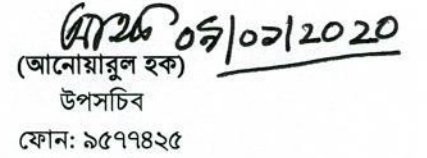 ০৯/০১/২০২০
(আনোয়ারুল হক)
উপসচিব
ফোন: ৯৫৭৭৪২৫